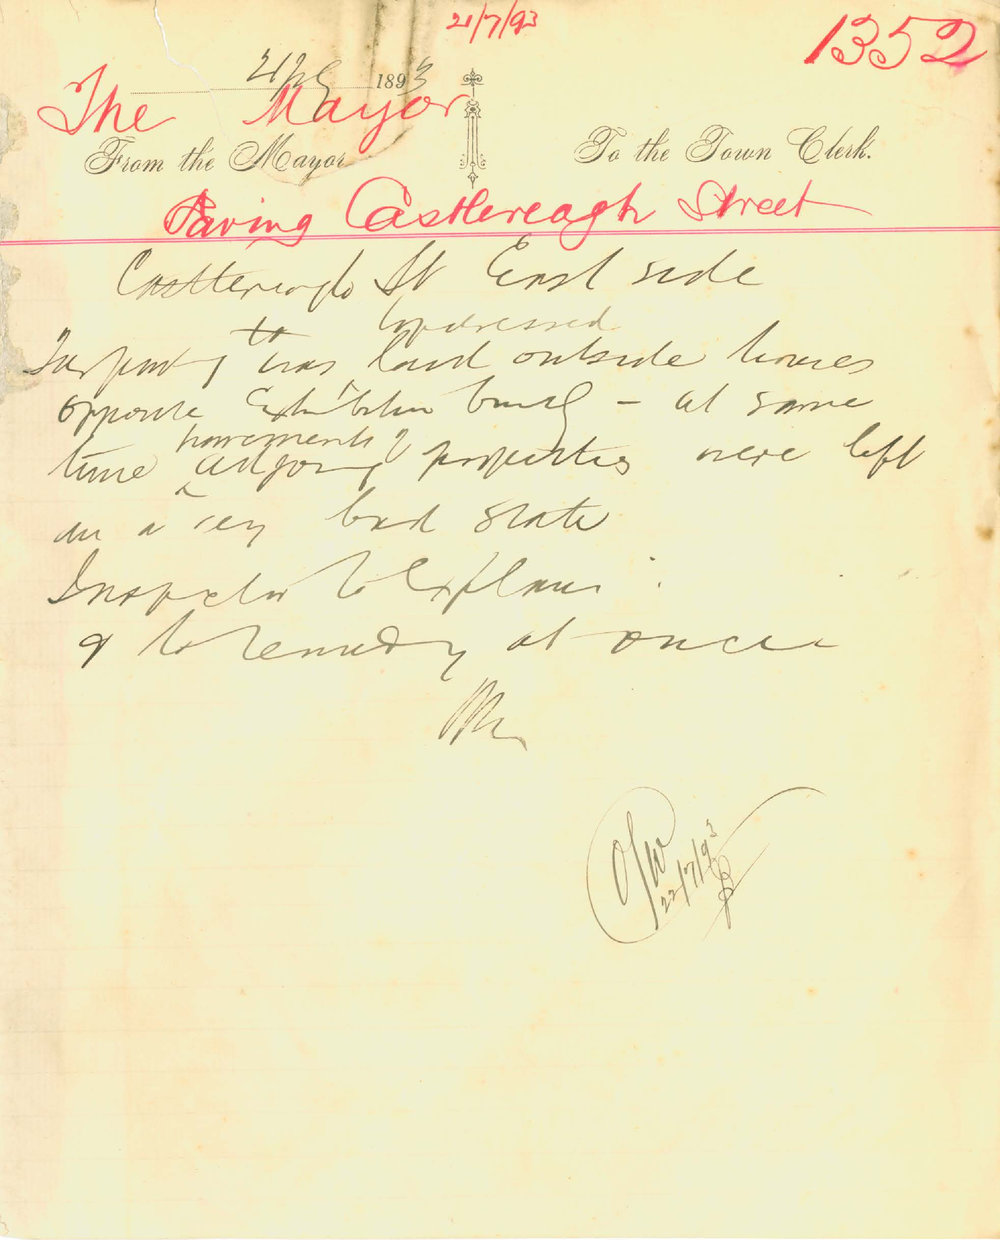 21/7/93
1352
21 July 1893
The Mayor
From the Mayor
To the Town Clerk.
Paving Castlereagh Street
Castlereagh St East side
to Compressed
Tar paving was laid outside houses
opposite Exhibition build - at same
pavements
time adjoining properties were left
in a very bad state
Inspector to Explain
& to remedy at once
OJW
22/7/93